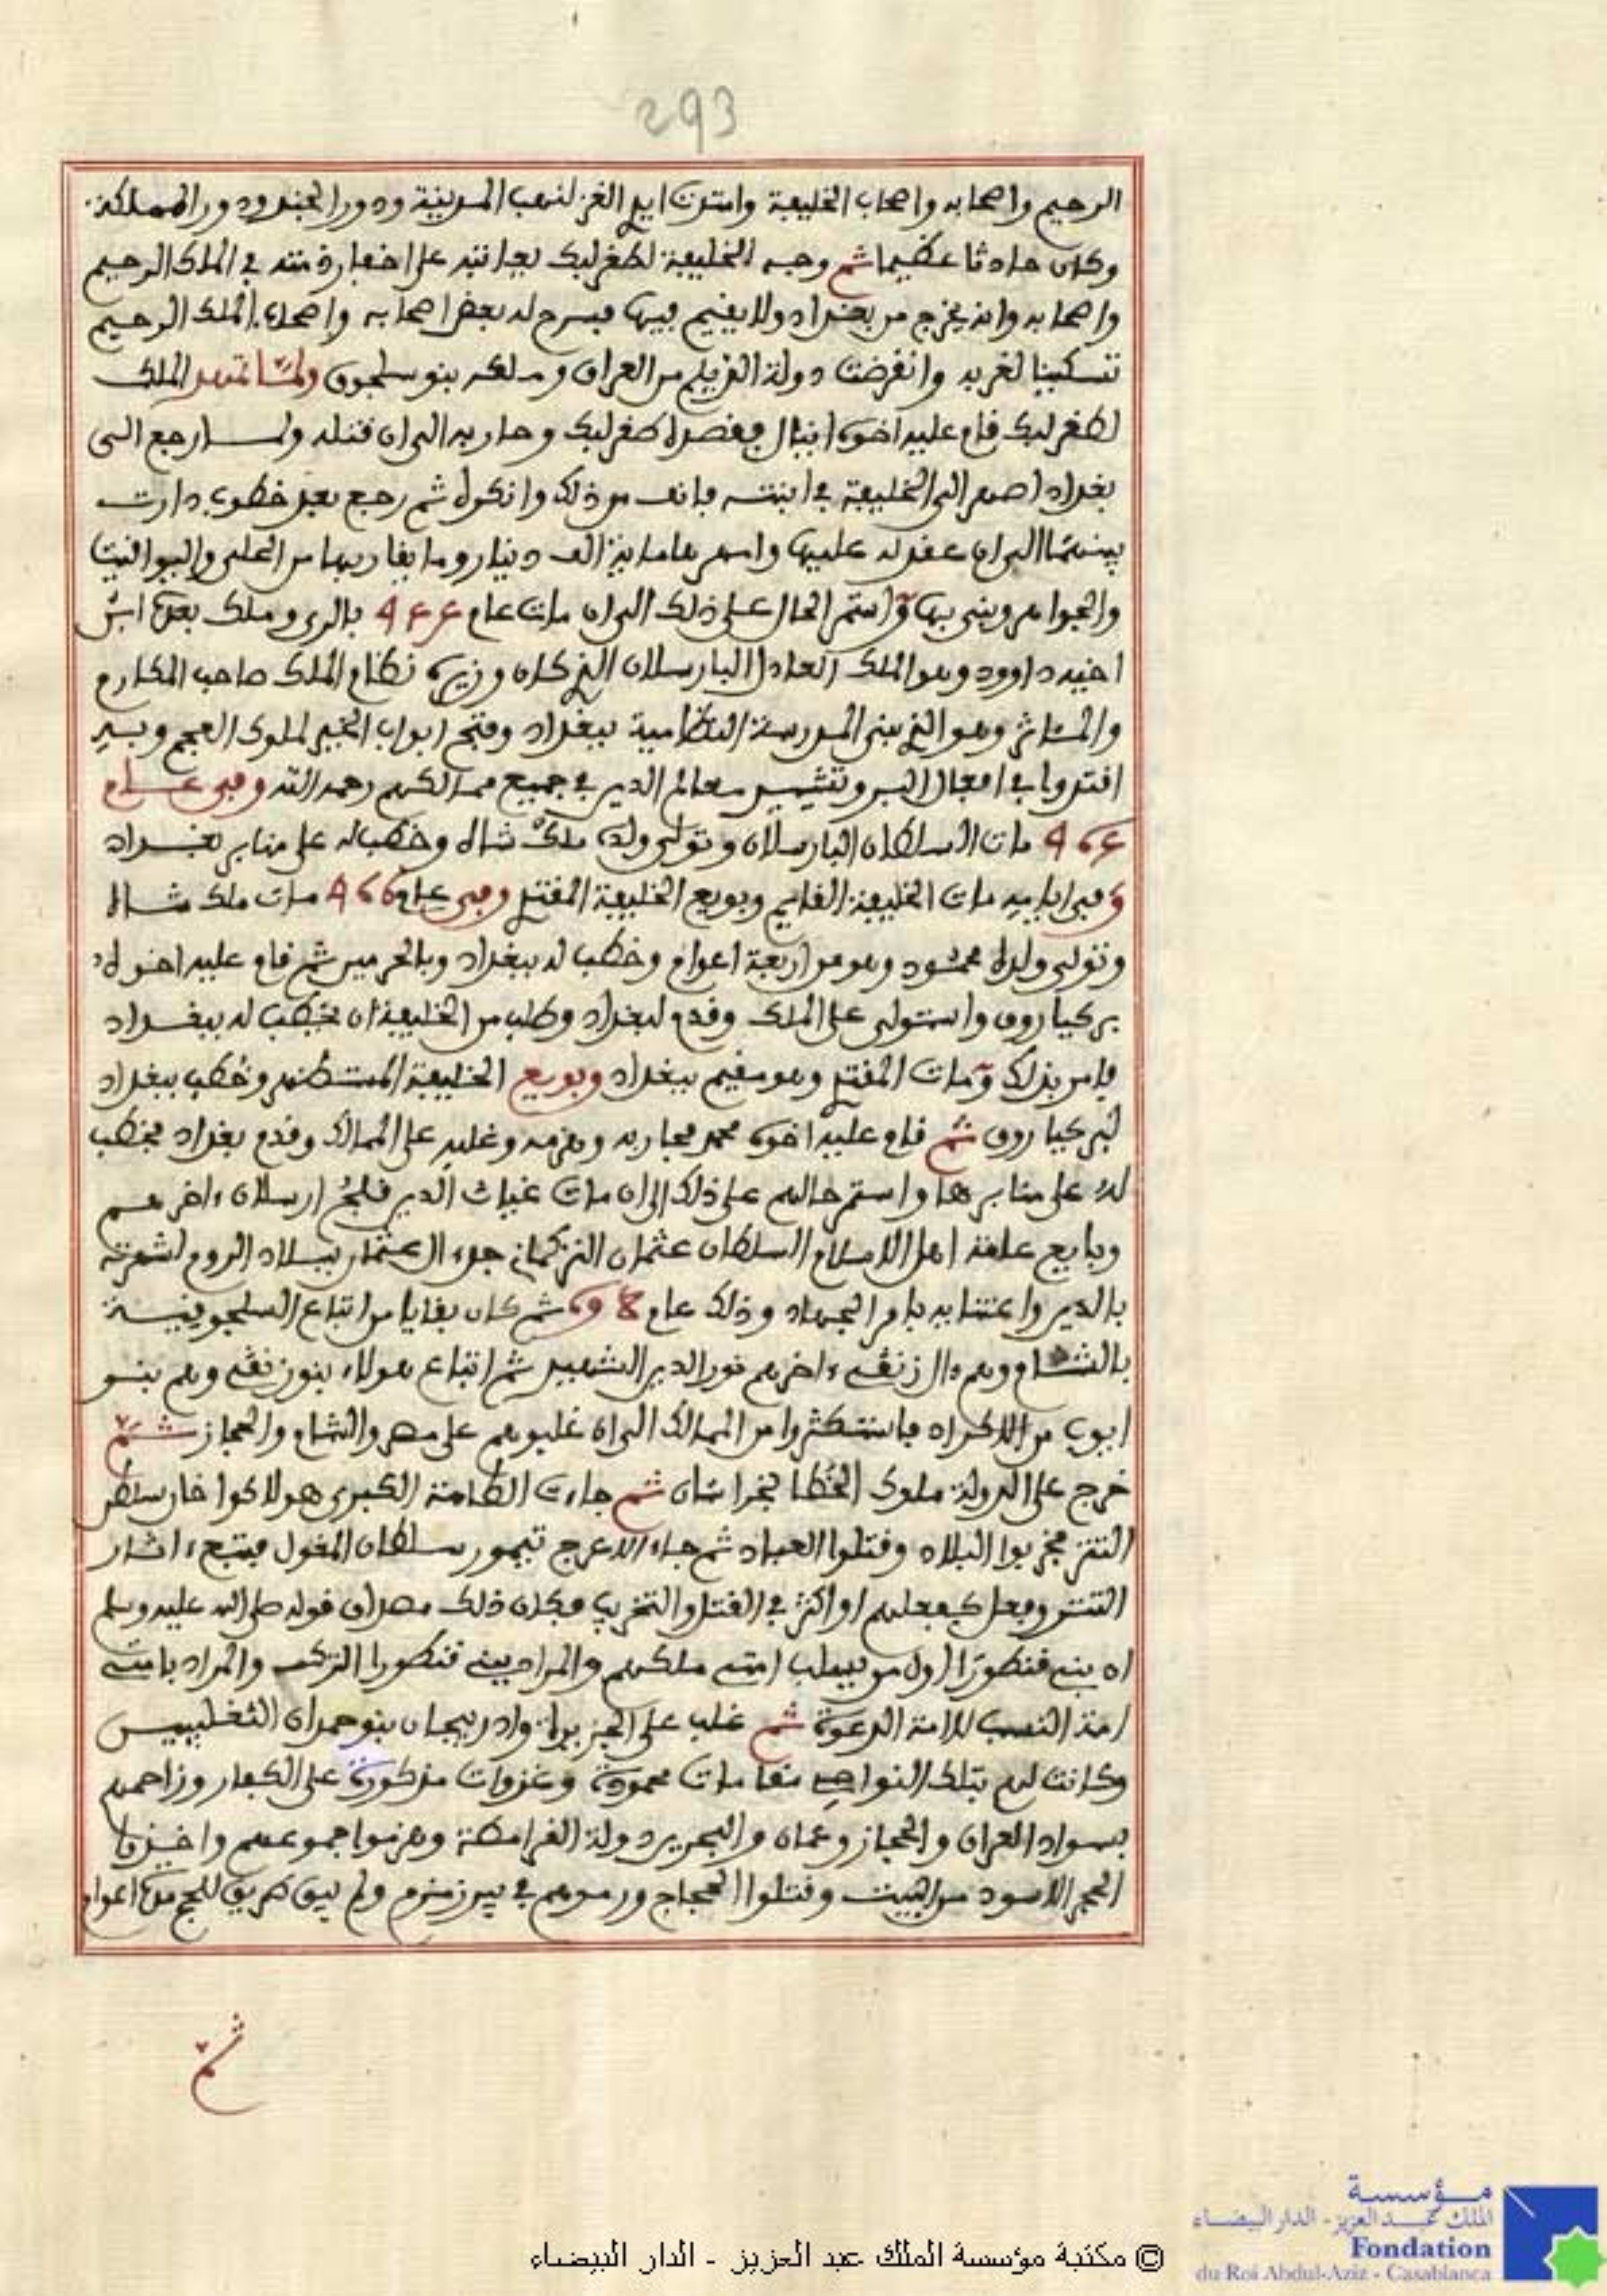 293
الرحيم واصحابه واصحاب الخليفة وامتدت ايدي الغز لنهب المدينة ودور الجند ودور المملكة
وكان حادثا عظيما ثم وجه الخليفة لطغرلبك يعاتبه على اخفار ذمته في الملك الرحيم
واصحابه وانه يخرج من بغداد ولا يقيم فيها فسرح له بعض اصحابه واصحاب الملك الرحيم
تسكينا لغربه وانقرضت دولة الديلم من العراق وملكه بنو سلجوق ولما تمهد الملك
لطغرلبك قام عليه اخوه اينال فقصده طغرلبك وحاربه الى ان قتله ولما رجع الى
بغداد اصهر الى الخليفة في ابنته فانف من ذلك وانكره ثم رجع بعد خطوب دارت
بينهما الى ان عقد له عليها وامهرها ماية الف دينار وما يقاربها من الحلى واليواقيت
والجواهر وبنى بها واستمر الحال على ذلك الى ان مات عام بالرى وملك بعده ابن
اخيه داوود وهو الملك العادل البارسلان الذي كان وزيره نظام الملك صاحب المكارم
والمئاثر وهو الذي بنى المدرسة النظامية ببغداد وفتح ابواب الخير لملوك العجم وبه
اقتدوا في افعال البر وتشييد معالم الدين في جميع ممالكهم رحمه الله وفى عام
مات السلطان البارسلان وتولى ولده ملك شاه وخطب له على منابر بغداد
وفى ايامه مات الخليفة القايم وبويع الخليفة المقتدي وفى عام مات ملك شاه
وتولى ولده محمود وهو من اربعة اعوام وخطب له ببغداد وبالحرمين ثم قام عليه اخوه
بركياروق واستولى على الملك وقدم لبغداد وطلب من الخليفة ان يخطب له ببغداد
فامر بذلك ومات المقتدي وهو مقيم ببغداد وبويع الخليفة المستظهر وخطب ببغداد
لبركياروق ثم قام عليه اخوه محمد فحاربه وهزمه وغلبه على الممالك وقدم بغداد فخطب
له على منابرها واستمر حالهم على ذلك الى ان مات غياث الدين قلج ارسلان ءاخرهم
وبايع عامة اهل الاسلام السلطان عثمان التركماني جد ءال عثمان ببلاد الروم لشهرته
بالدين واعتنايه بامر الجهاد وذلك عام ثم كان بقايا من اتباع السلجوقية
بالشام وهم ءال زنقي ءاخرهم نور الدين الشهيد ثم اتباع هولاء بنون نقي وهم بنو
ايوب من الاكراد فاستكثروا من الممالك الى ان غلبوهم على مصر والشام والحجاز ثم
خرج على الدولة ملوك الخطا بخراسان ثم جاءت الطامة الكبرى هولاكوا خان سلطان
التتر فخربوا البلاد وقتلوا العباد ثم جاء الاعرج تيمور سلطان المغول فتبع ءاثار
التتر وفعل كفعلهم او اكثر في القتل والتخريب فكان ذلك مصداق قوله صلى الله عليه وسلم
ان بني قنطورا اول من يسلب امتي ملكهم والمراد ببني قنطورا الترك والمراد بامتي
امة النسب لا امة الدعوة ثم غلب على الجزيرة واذربيجان بنو حمدان التغلبيين
وكانت لهم بتلك النواحي مقامات محمودة وغزوات مذكورة على الكفار وزاحمهم
بسواد العراق والحجاز وعمان والبحرين دولة القرامطة وهزموا جموعهم واخذوا
الحجر الاسود من البيت وقتلوا الحجاج ورموهم في بير زمزم ولم يبق طريق للحج مدة اعوام
ثم
© مكتبة مؤسسة الملك عبد العزيز - الدار البيضاء
مؤسسة
الملك عبد العزيز - الدار البيضاء
Fondation
du Roi Abdul-Aziz - Casablanca